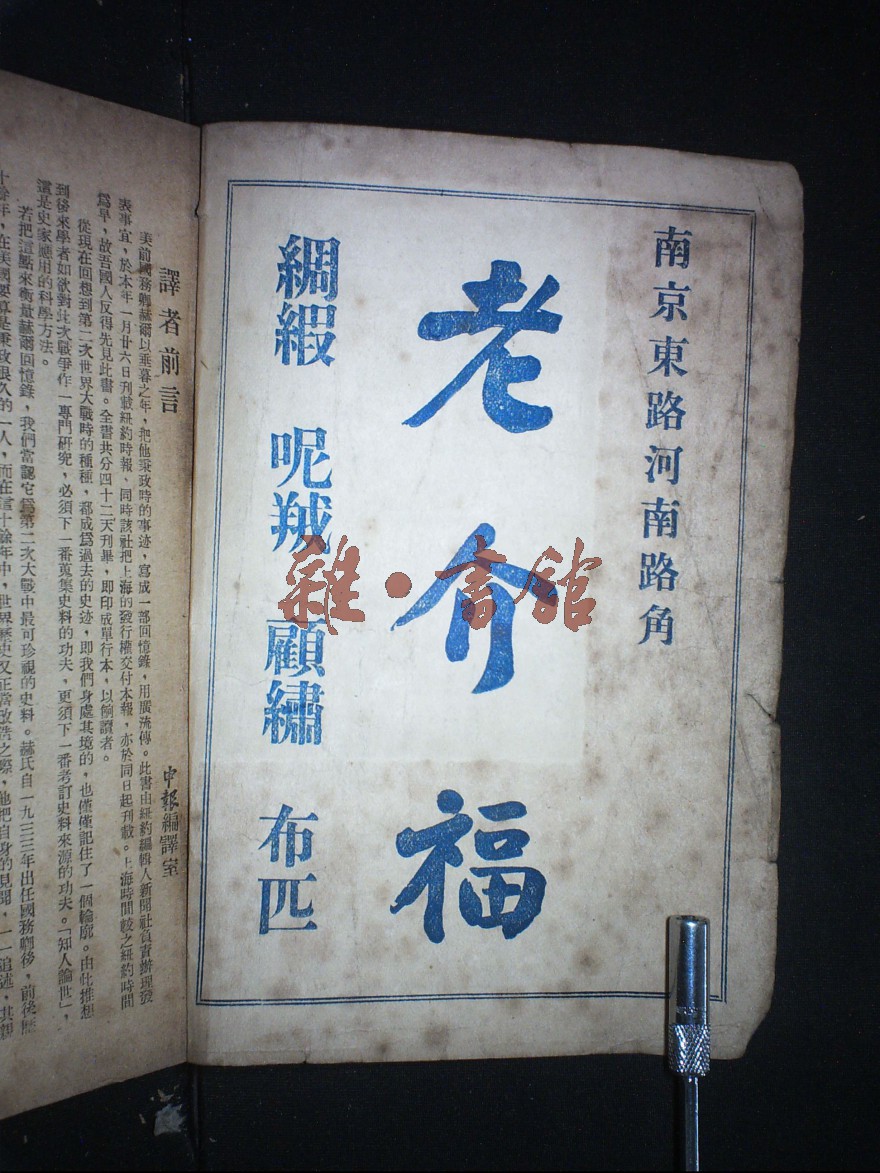 南京東路河南路角
老介福
綢緞 呢羢 顧繡 布匹
雜·書館
譯者前言
申報編譯室
美前國務卿赫爾以垂暮之年，把他秉政時的事迹，寫成一部回憶錄，用廣流傳。此書由紐約編輯人新聞社負責辦理發
表事宜，於本年一月廿六日刊載紐約時報、同時該社把上海的發行權交付本報，亦於同日起刊載。上海時間較之紐約時間
爲早，故吾國人反得先見此書。全書共分四十二天刊畢，即印成單行本，以餉讀者。
從現在回想到第二次世界大戰時的種種，都成爲過去的史迹，即我們身處其境的，也僅僅記住了一個輪廓。由此推想
到後來學者如欲對此次戰爭作一專門研究，必須下一番蒐集史料的功夫，更須下一番考訂史料來源的功夫。「知人論世」，
這是史家應用的科學方法。
若把這點來衡量赫爾回憶錄，我們當認它爲第二次大戰中最可珍視的史料。赫氏自一九三三年出任國務卿後，前後歷
十餘年，在美國要算是秉政最久的一人，而在這十餘年中，世界歷史又正當改造之際，他把自身的見聞，一一追述，其親